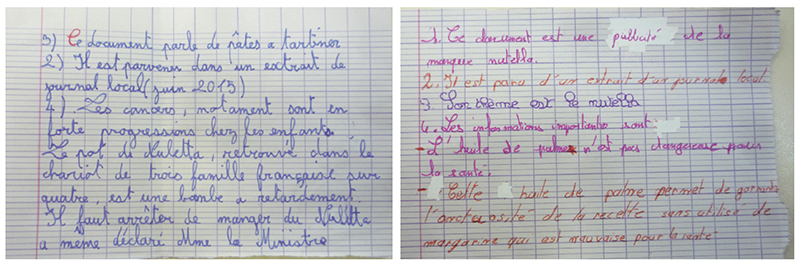 3) Ce document parle de pâtes a tartiner
2) Il est parvenu dans un extrait de
journal local (juin 2013)
4) Les cancers, notament sont en
forte progressions chez les enfants.
Le pot de Nuletta, retrouvé dans le
chariot de trois famille française sur
quatre, est une bombe a retardement.
Il faut arrêter de manger du Nuletta
a même déclaré Mme la Ministre
1. Ce document est une publicité de la
marque nutella.
2. Il est paru d'un extrait d'un journal local
3 Son thème est le nutella
4. Les informations importante sont
- L'huile de palme n'est pas dangereuse pour
la santé.
- Cette huile de palme permet de garantir
l'onctuosité de la recette sans utilisé de
margarine qui est mauvaise pour la santé